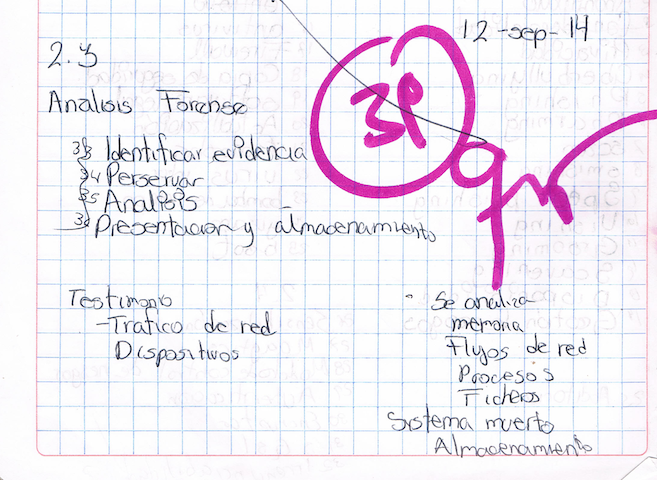 12-sep-14
2.3
3P
Analisis Forense
33 Identificar evidencia
34 Perservar
35 Analisis
36 Presentacion y almacenamiento
Testimonio
-Trafico de red
Dispositivos
Se analiza
memoria
Flujos de red
Procesos
Ficheros
Sistema muerto
Almacenamiento